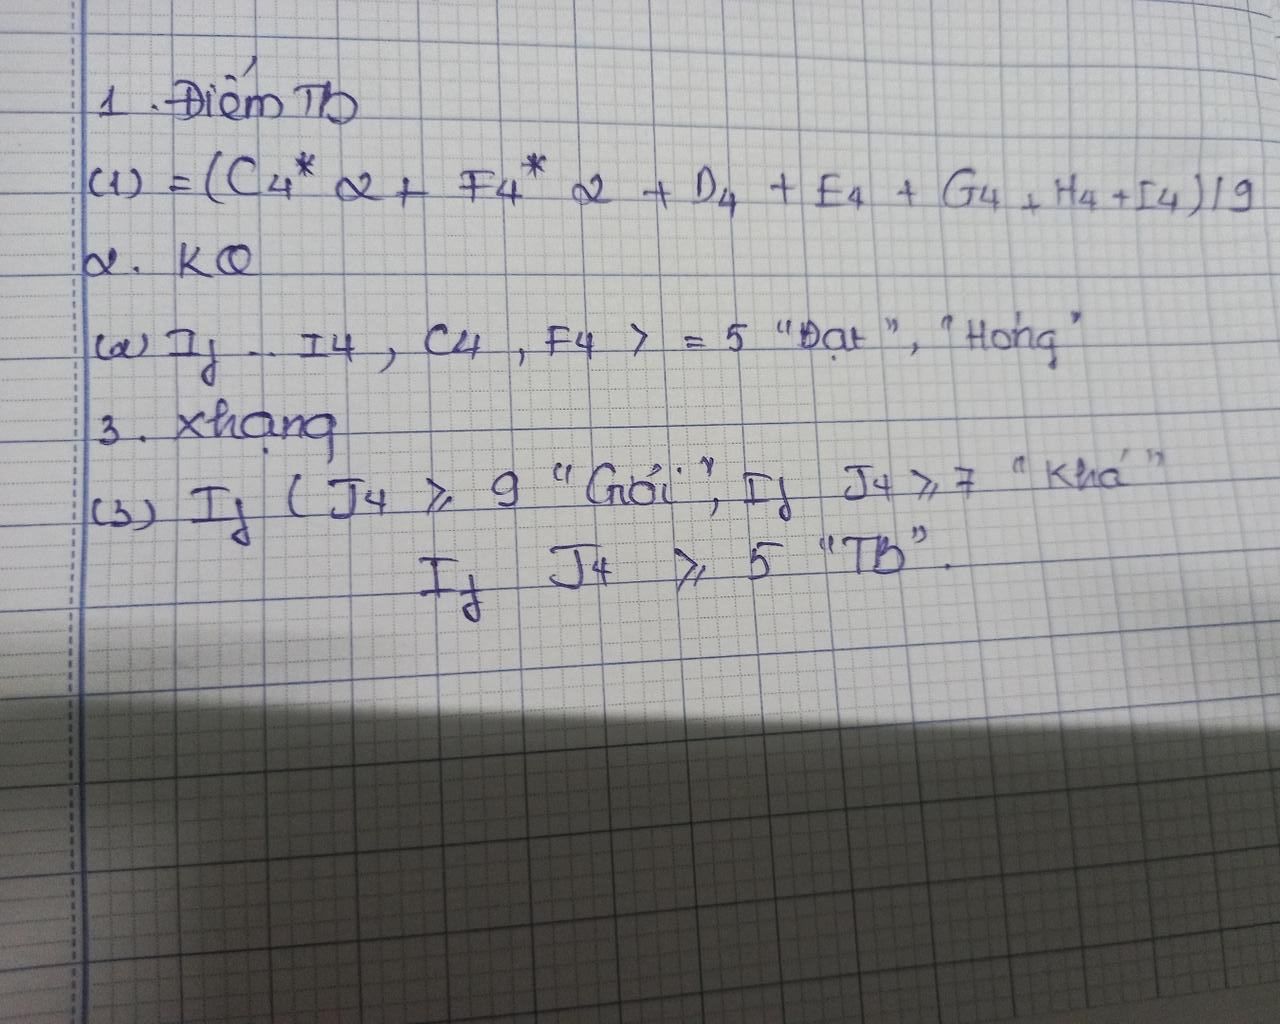 1. Điểm Tb
(1) = (C4* 2 + F4* 2 + D4 + E4 + G4 + H4 + I4) / 9
2. KQ
(2) If .. I4, C4, F4 > = 5 "Đạt", "Hỏng"
3. xhạng
(3) If (J4 ≥ 9 "Giỏi", If J4 ≥ 7 "Khá"
If J4 ≥ 5 "TB".